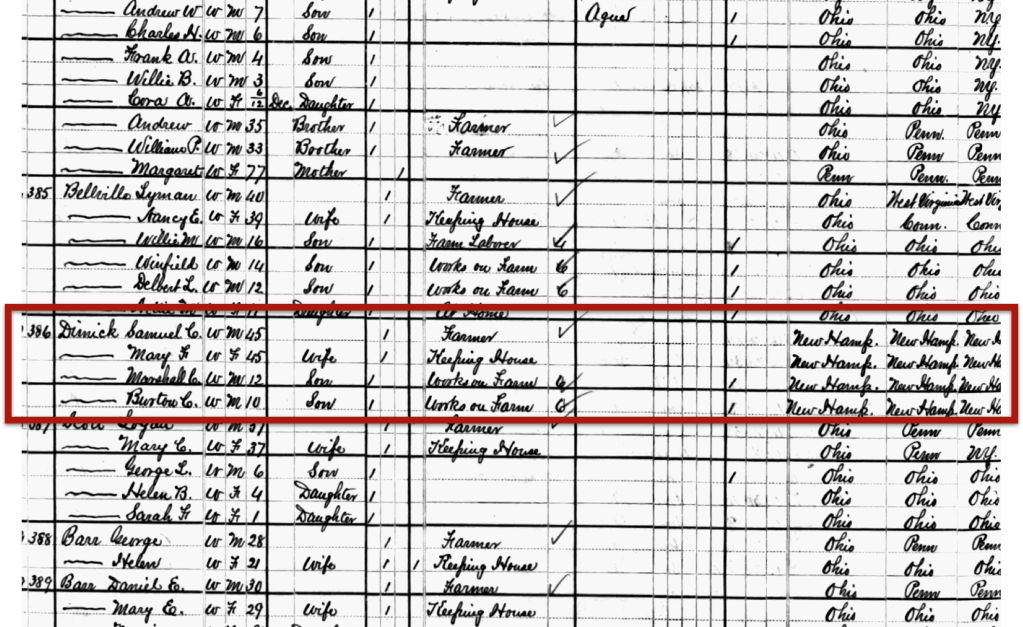 Andrew W W M 7 Son 1 Ague 1 Ohio Ohio NY
Charles H. W M 6 Son 1 1 Ohio Ohio NY.
Frank A. W M 4 Son 1 Ohio Ohio NY.
Willie B. W M 3 Son 1 Ohio Ohio NY.
Cora A. W F 6/12 Dec. Daughter 1 Ohio Ohio NY
Andrew W M 35 Brother 1 Farmer Ohio Penn. Penn
William P. W M 33 Brother 1 Farmer Ohio Penn Penn
Margaret W F 77 Mother 1 Penn Penn. Penn
385 Bellville Lyman W M 40 1 Farmer Ohio West Virginia West Vir
Nancy E. W F 39 Wife 1 Keeping House Ohio Conn. Conn
Willie M W M 16 Son 1 Farm Laborer 1 Ohio Ohio Ohi
Winfield W M 14 Son 1 Works on Farm 6 1 Ohio Ohio Ohio
Delbert L. W M 12 Son 1 Works on Farm 6 1 Ohio Ohio Ohi
W F 11 Daughter 1 At Home 1 Ohio Ohio Ohio
386 Dimick Samuel C. W M 45 1 Farmer New Hamp. New Hamp. New H
Mary F W F 45 Wife 1 Keeping House New Hamp. New Hamp. New H
Marshall C. W M 12 Son 1 Works on Farm 6 1 New Hamp. New Hamp. New Ha
Burton C. W M 10 Son 1 Works on Farm 6 1 New Hamp. New Hamp. New Ha
387 Logan W M 37 1 Farmer Ohio Penn Penn
Mary C. W F 37 Wife 1 Keeping House Ohio Penn NY.
George L. W M 6 Son 1 1 Ohio Ohio Ohi
Helen B. W F 4 Daughter 1 Ohio Ohio Ohio
Sarah F W F 1 Daughter 1 Ohio Ohio Ohio
388 Barr George W M 28 1 Farmer Ohio Penn Penn
Helen W F 21 Wife 1 1 Keeping House Ohio Ohio Ohi
389 Barr Daniel E. W M 30 1 Farmer Ohio Ohio Penn
Mary E. W F 29 Wife 1 Keeping House Ohio Ohio Ohio